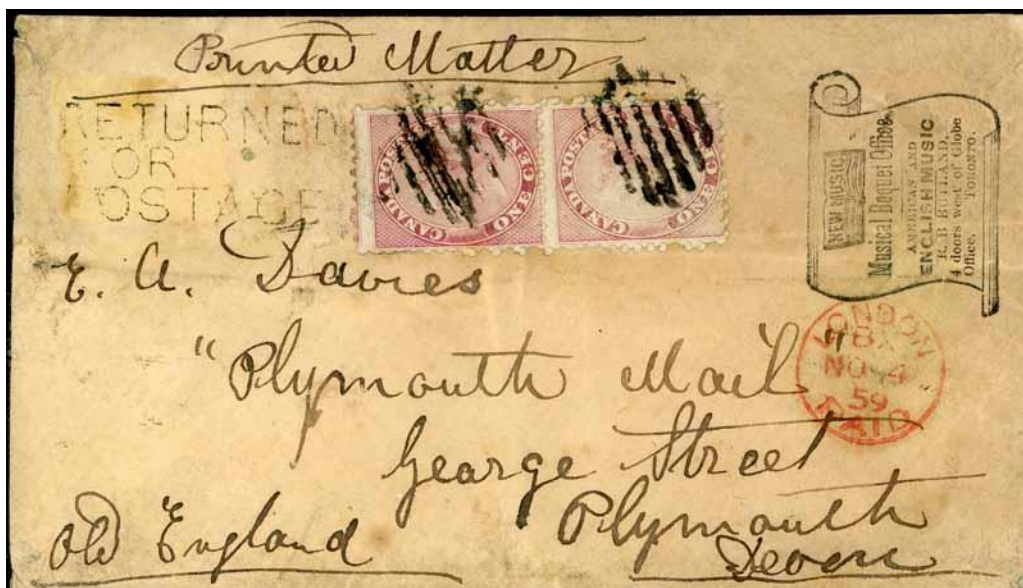 Printed Matter
RETURNED
FOR
POSTAGE
CANADA POSTAGE ONE CENT
CANADA POSTAGE ONE CENT
NEW MUSIC
Musical Boquet Office
AMERICAN AND
ENGLISH MUSIC
E. B BUTLAND,
4 doors west of Globe
Office. TORONTO.
E. A. Davies
"Plymouth Mail"
George Street
Plymouth
Devon
Old England
LONDON
NO 4
59
PAID